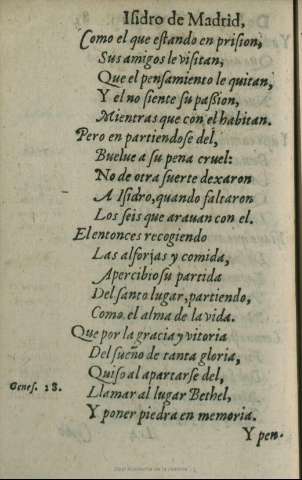 Isidro de Madrid,
Como el que eſtando en priſion,
Sus amigos le viſitan,
Que el penſamiento le quitan,
Y el no ſiente ſu paſſion,
Mientras que con el habitan.
Pero en partiendoſe del,
Buelue a ſu pena cruel:
No de otra ſuerte dexaron
A Iſidro, quando faltaron
Los ſeis que arauan con el.
El entonces recogiendo
Las alforjas y comida,
Apercibio ſu partida
Del ſanto lugar, partiendo,
Como el alma de la vida.
Que por la gracia y vitoria
Del ſueño de tanta gloria,
Quiſo al apartarſe del,
Geneſ. 28.
Llamar al lugar Bethel,
Y poner piedra en memoria.
Y pen-